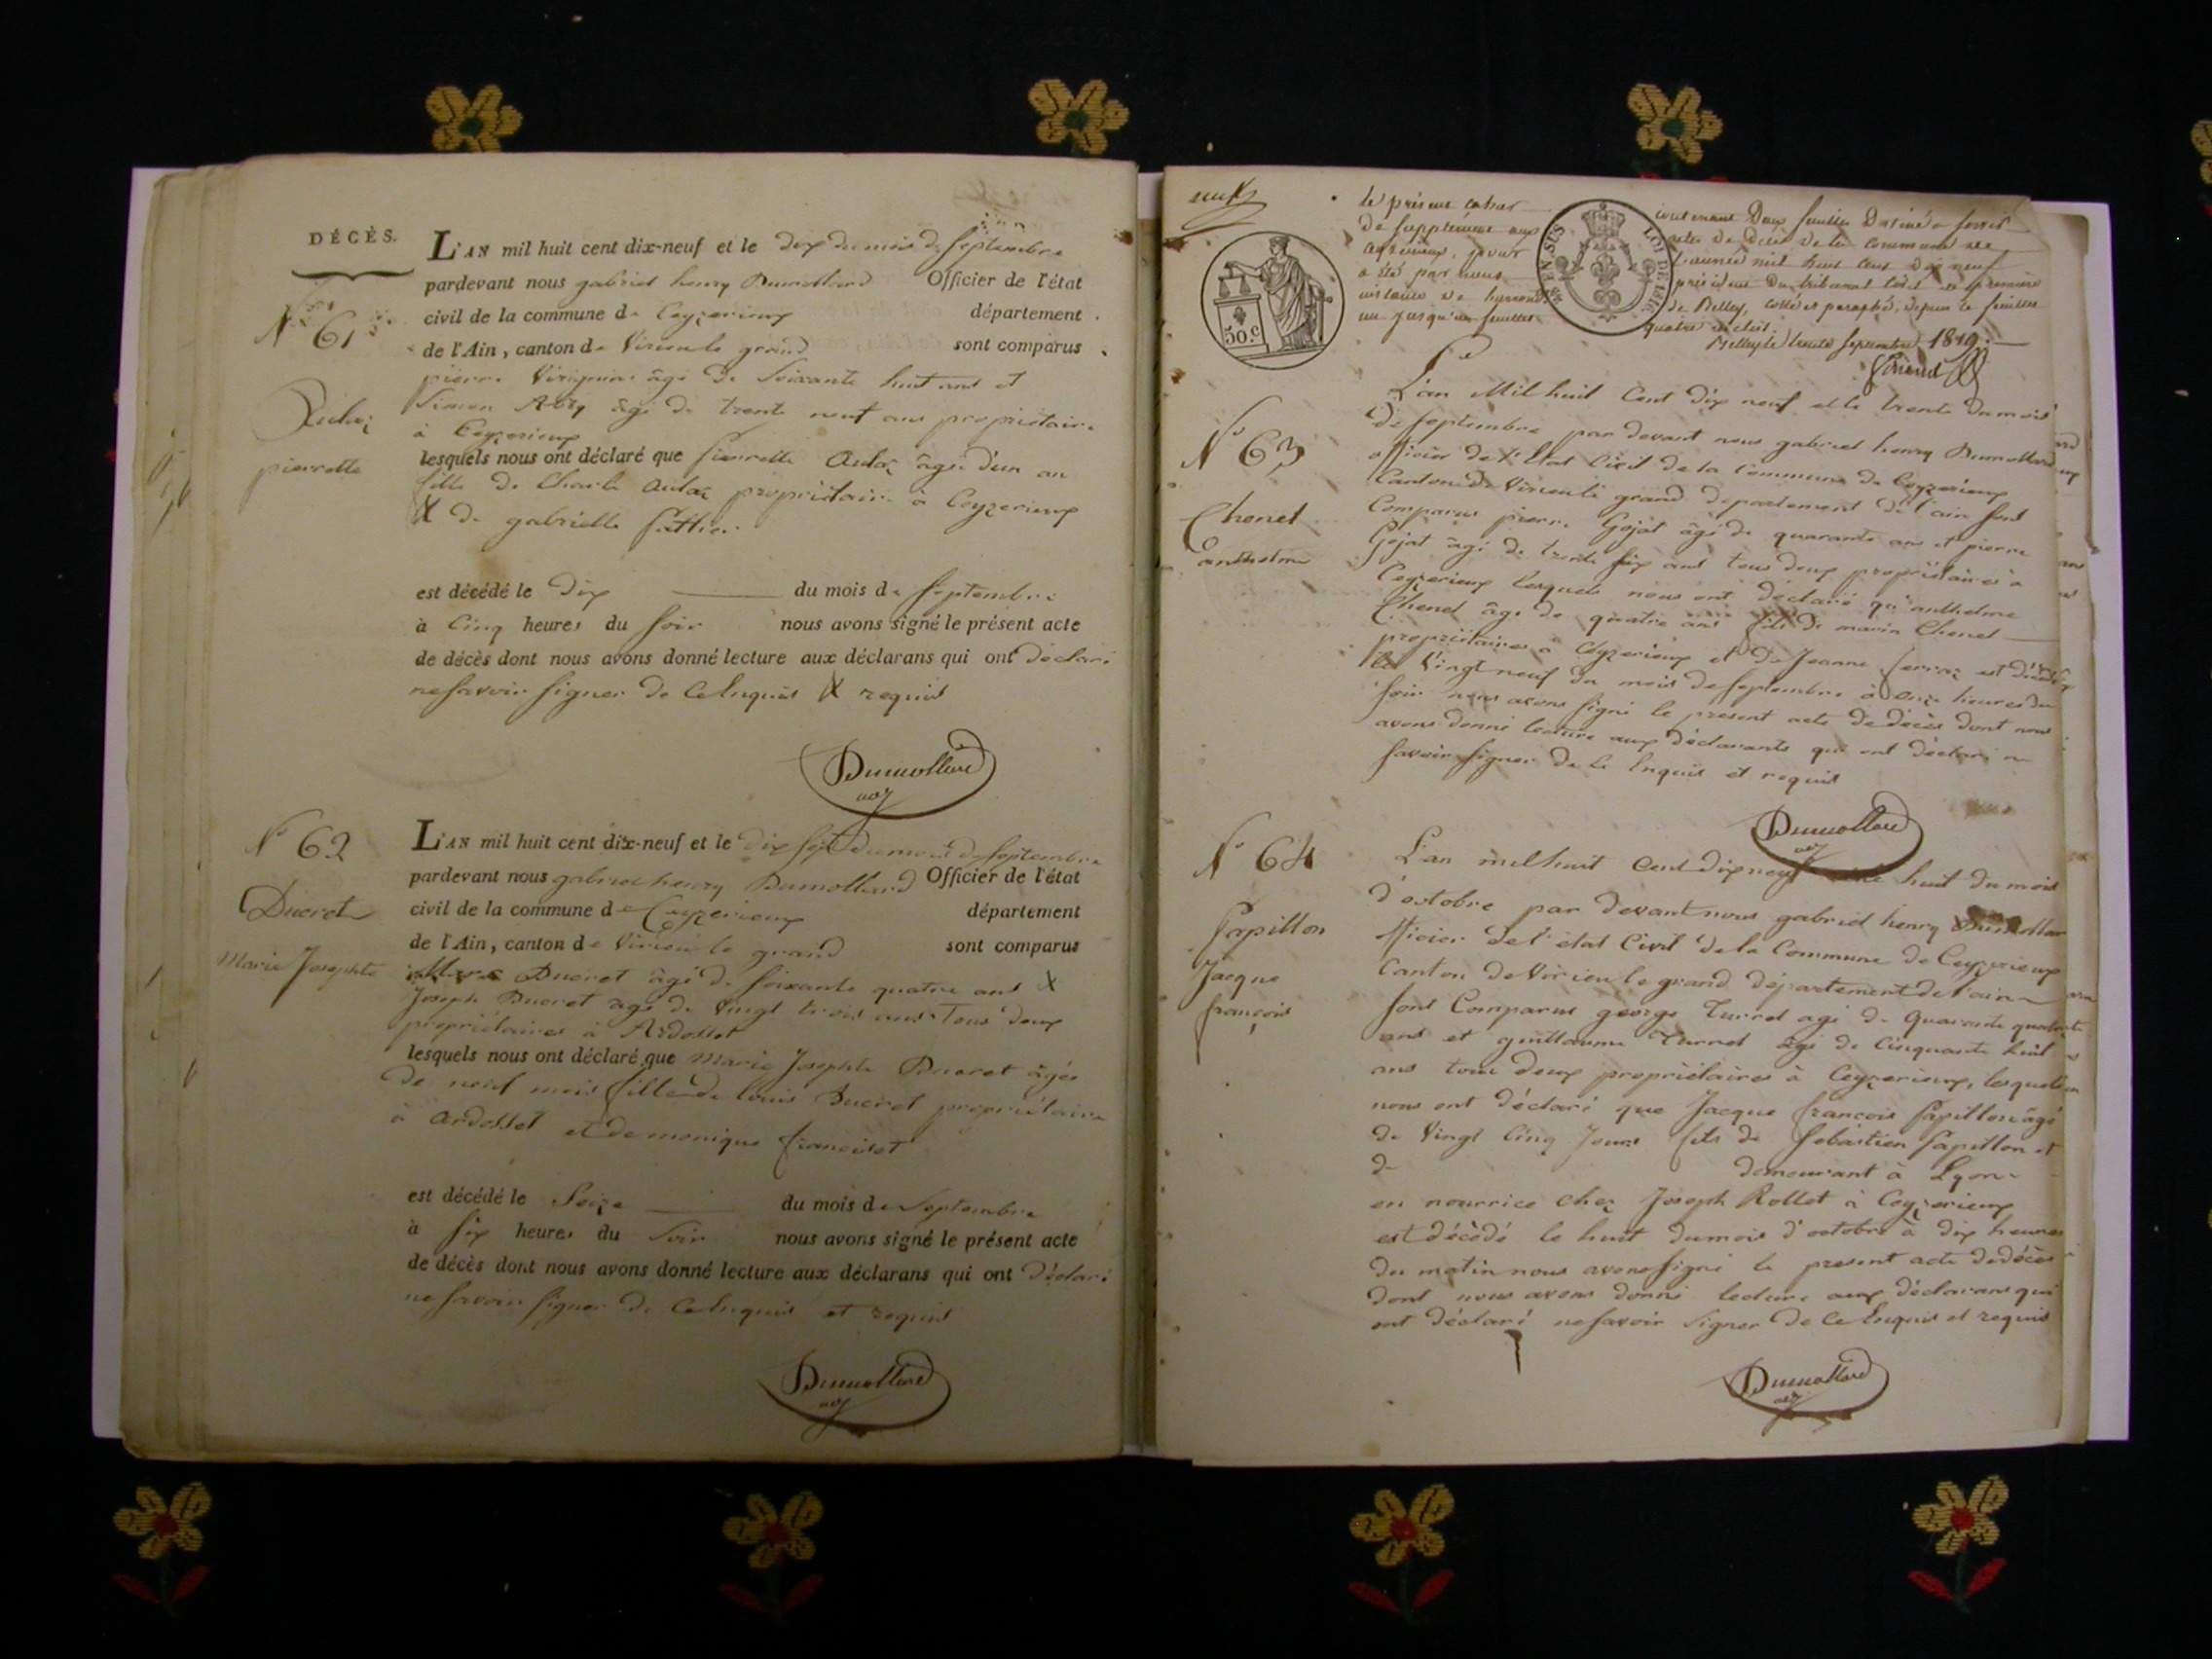 DÉCÈS.
N° 61
pierrette
L'AN mil huit cent dix-neuf et le dix du mois de septembre
pardevant nous gabriel henry Dumollard Officier de l'état
civil de la commune de Ceyzerieux département
de l'Ain, canton de Virieu le grand sont comparus
pierre âgé de soixante huit ans et
Simon âgé de trente neuf ans propriétaire
à Ceyzerieux
lesquels nous ont déclaré que pierrette âgée d'un an
fille de Charle propriétaire à Ceyzerieux
& de gabrielle
est décédé le dix du mois de septembre
à Cinq heures du soir nous avons signé le présent acte
de décès dont nous avons donné lecture aux déclarans qui ont déclaré
ne savoir signer de ce Enquis & requis
Dumollard
N° 62
Ducret
Marie Josephte
L'AN mil huit cent dix-neuf et le dix sept du mois de septembre
pardevant nous gabriel henry Dumollard Officier de l'état
civil de la commune de Ceyzerieux département
de l'Ain, canton de Virieu le grand sont comparus
Ducret âgé de soixante quatre ans &
Joseph Ducret agé de vingt trois ans Tous deux
propriétaires à Ardosset
lesquels nous ont déclaré que Marie Josephte Ducret âgée
de neuf mois fille de louis Ducret propriétaire
à ardosset et de monique francisot
est décédé le Seize du mois de Septembre
à six heures du soir nous avons signé le présent acte
de décès dont nous avons donné lecture aux déclarans qui ont déclaré
ne savoir signer de ce Enquis et requis
Dumollard
le présent cahier
de supplément aux
pour
a été par nous
un jusqu'au feuillet
50 c
EN SUS
LOI DE 1816
contenant Deux feuilles Destiné a servir
actes de Décès de la commune de
l'année mil huit cent dix neuf
président du tribunal Civil de première
de Belley, cotté et paraphé, depuis le feuillet
quatre
Belley le trente septembre 1819.
N° 63
Chenet
anthelme
L'an Mil huit Cent dix neuf et le trente du mois
de septembre par devant nous gabriel henry Dumollard
officier de l'Etat Civil de la Commune de Ceyzerieux
Canton de Virieu le grand departement de l'ain sont
Comparus pierre Gojat âgé de quarante ans et pierre
Gojat âgé de trente six ans tous deux propriétaires à
Ceyzerieux lesquels nous ont déclaré qu'anthelme
Chenet âgé de quatre ans fils de marin Chenet
propriétaires à Ceyzerieux et de Jeanne est décédé
le vingt neuf du mois de septembre à onze heures du
soir nous avons signé le present acte de décès dont nous
avons donné lecture aux déclarants qui ont déclaré ne
savoir signer de ce Enquis et requis
Dumollard
N° 64
Papillon
Jacque
françois
L'an mil huit Cent dix neuf et le huit du mois
d'octobre par devant nous gabriel henry Dumollar
officier de l'état Civil de la Commune de Ceyzerieux
Canton de Virieu le grand département de l'ain
sont Comparus george Turret agé de quarante quatre
ans et guillaume Turret âgé de cinquante huit
ans tous deux propriétaires à Ceyzerieux, lesquels
nous ont déclaré que Jacque françois Papillon âgé
de vingt Cinq Jours fils de Sebastien Papillon et
de demeurant à Lyon
en nourrice chez Joseph Rollet à Ceyzerieux
est décédé le huit du mois d'octobre à dix heures
du matin nous avons signé le present acte de décès
dont nous avons donné lecture aux déclarans qui
ont déclaré ne savoir signer de ce Enquis et requis
Dumollard